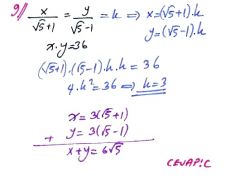 9// x/(√5+1) = y/(√5-1) = k ⇒ x=(√5+1).k
y=(√5-1).k
x.y=36
(√5+1).(√5-1).k.k = 36
4.k²=36 ⇒ k=3
x = 3(√5+1)
+ y = 3(√5-1)
x+y = 6√5
CEVAP:C